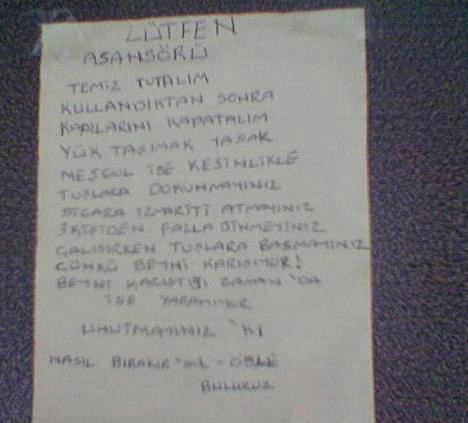 LÜTFEN
ASANSÖRÜ
TEMİZ TUTALIM
KULLANDIKTAN SONRA
KAPILARINI KAPATALIM
YÜK TAŞIMAK YASAK
MEŞGUL İSE KESİNLİKLE
TUŞLARA DOKUNMAYINIZ
SİGARA İZMARİTİ ATMAYINIZ
3 KİŞİDEN FAZLA BİNMEYİNİZ
ÇALIŞIRKEN TUŞLARA BASMAYINIZ
ÇÜNKÜ BEYNİ KARIŞIYOR!
BEYNİ KARIŞTIĞI ZAMAN 'DA
İŞE YARAMIYOR
UNUTMAYINIZ 'Kİ
NASIL BIRAKIR - ÖYLE
BULURUZ